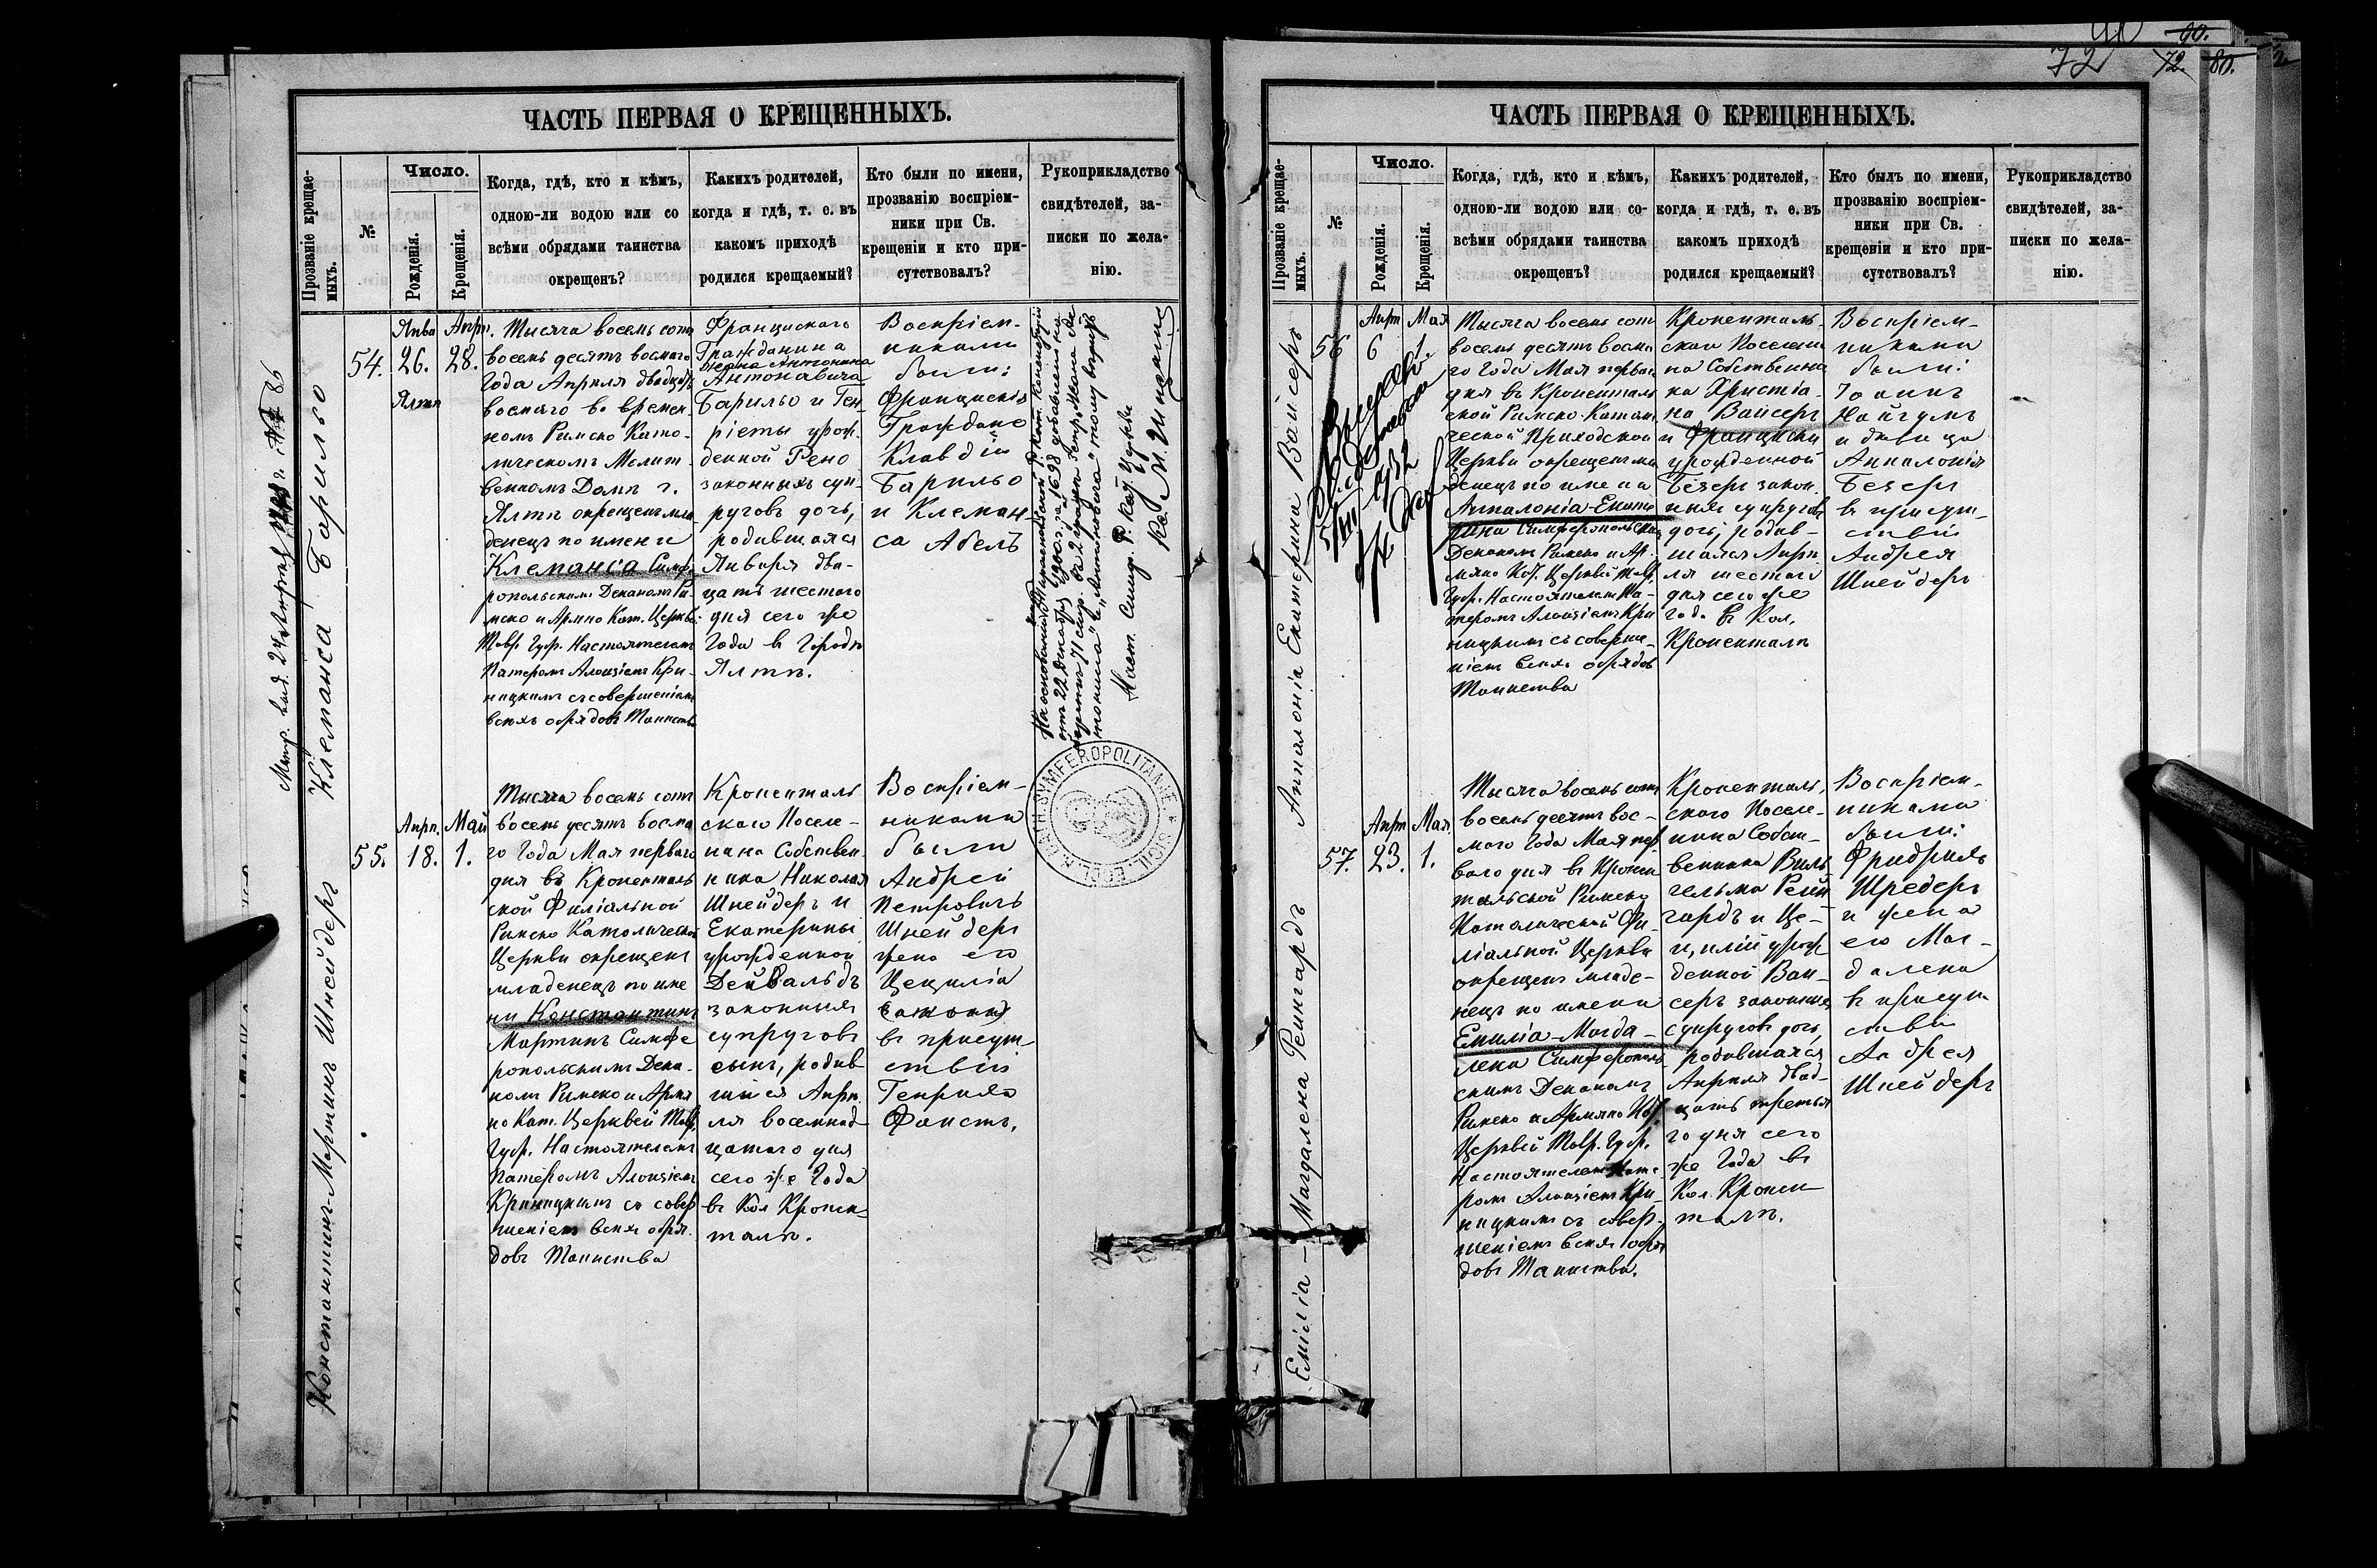 ЧАСТЬ ПЕРВАЯ О КРЕЩЕННЫХЪ.
Прозваніе крещае-
мыхъ.
№
Число.
Рожденія.
Крещенія.
Когда, гдѣ, кто и кѣмъ,
одною-ли водою или со
всѣми обрядами таинства
окрещенъ?
Какихъ родителей,
когда и гдѣ, т. е. въ
какомъ приходѣ
родился крещаемый?
Кто были по имени,
прозванію воспріем-
ники при Св.
крещеніи и кто при-
сутствовалъ?
Рукоприкладство
свидѣтелей, за-
писки по жела-
нію.
Клеманса Барильо
54.
Янва
26.
Ялта
Апр.
28.
Тысяча восемь сотъ
восемь десятъ восмаго
Года Апрѣля двадцать
восмаго во времен-
номъ Римско Като-
лическомъ Молит-
венномъ Домѣ г.
Ялтѣ окрещенъ мла-
денецъ по имени
Клеманса Симфе
ропольскимъ Деканомъ Ри-
мско и Армяно Кат. Церквей
Тавр. Губ. Настоятелемъ
Патеромъ Алоизіемъ Кри-
ницкимъ съ совершеніемъ
всѣхъ обрядовъ Таинства
Французскаго
Гражданина
Ивана Антонина
Антоновича
Барильо и Ген-
ріеты урож-
денной Рено
законныхъ суп-
руговъ дочь,
родившаяся
Января два-
цать шестого
дня сего же
Года в Городѣ
Ялтѣ.
Воспріем-
никами
были:
Французскіе
Граждане
Клавдій
Барильо
и Клеман-
са Абелъ
На основаніи
отъ 22 декабря 1900 г. за № 1698 добавлено на
оборотѣ 71 стр. въ 2 графѣ
Наст. Симф. Р. Кат. Церкви
Кс. М.
ECCLE. R. CATH. SYMFEROPOLITANAE * SIGIL.
Константинъ-Мартинъ Шнейдеръ
55.
Апрѣ.
18.
Май
1.
Тысяча восемь сотъ
восемь десятъ восма
го Года Мая перваго
дня въ Кроненталь
ской Филіальной
Римско Католической
Церкви окрещенъ
младенецъ по име
ни Константинъ
Мартинъ Симфе
ропольскимъ Дека-
номъ Римско и Армя
но Кат. Церквей Тавр.
Губ. Настоятелемъ
Патеромъ Алоизіемъ
Криницкимъ съ совер
шеніемъ всѣхъ обря-
довъ Таинства
Кроненталь
скаго Поселе-
нина Собствен
ника Николая
Шнейдеръ и
Екатерины
урожденной
Дейвальдъ
законныхъ
супруговъ
сынъ, родив
шійся Апрѣ-
ля восемнад-
цатаго дня
сего же Года
въ Кол Кронен-
талѣ.
Воспріем-
никами
были
Андрей
Петровичъ
Шнейдеръ
жена его
Цецилія
въ присут-
ствіи
Генриха
Фаистъ.
ЧАСТЬ ПЕРВАЯ О КРЕЩЕННЫХЪ.
72
90.
72.
80.
Прозваніе крещае-
мыхъ.
№
Число.
Рожденія.
Крещенія.
Когда, гдѣ, кто и кѣмъ,
одною-ли водою или со-
всѣми обрядами таинства
окрещенъ?
Какихъ родителей,
когда и гдѣ, т. е. въ
какомъ приходѣ
родился крещаемый?
Кто былъ по имени,
прозванію воспріем-
ники при Св.
крещеніи и кто при-
сутствовалъ?
Рукоприкладство
свидѣтелей, за-
писки по жела-
нію.
Аппалонія Екатерина Вайсеръ
56
Апр
6
Мая
1.
1932
Тысяча восемь сотъ
восемь десятъ восма
го Года Мая перваго
дня въ Кроненталь
ской Римско-Католи
ческой Приходской
Церкви окрещенъ мла
денецъ по имени
Аппалонія-Екате
рина Симферопольскимъ
Деканомъ Римско и Ар-
мяно Кат. Церквей Тавр.
Губ. Настоятелемъ Па-
теромъ Алоизіемъ Кри
ницкимъ съ соверше-
ніемъ всѣхъ обрядовъ
Таинства
Кроненталь-
скаго Поселени
на Собственни
ка Христіа-
на Вайсеръ
и Францишки
урожденной
Безеръ закон-
ныхъ супруговъ
дочь, родив-
шаяся Апрѣ
ля шестаго
дня сего же
года въ Кол.
Кроненталѣ
Воспріем-
никами
были:
Іоаннъ
и дѣвица
Аппалонія
Безеръ
въ присут-
ствіи
Андрея
Шнейдеръ
Емілія - Магдалена Реингардъ
57.
Апр
23.
Мая.
1.
Тысяча восемь сотъ
восемь десятъ вос-
маго Года Мая пер
ваго дня въ Кронен
тальской Римско
Католической Фи-
ліальной Церкви
окрещенъ младе-
нецъ по имени
Емилія-Магда-
лена Симферополь
скимъ Деканомъ
Римско и Армяно Кат.
Церквей Тавр. Губ.
Настоятелемъ Пате
ромъ Алоизіемъ Кри-
ницкимъ съ совер-
шеніемъ всѣхъ обря
довъ Таинства.
Кроненталь-
скаго Поселе-
нина Собст-
венника Виль
гельма Рейн
гардъ и Це-
циліи урож
денной Вай-
серъ законныхъ
супруговъ дочь,
родившаяся
Апрѣля двад-
цать третья
го дня сего
же Года въ
Кол. Кронен-
талѣ.
Воспріем-
никами
были:
Фридрихъ
Шредеръ
и жена
его Маг-
далена
въ присут
ствіи
Андрея
Шнейдеръ